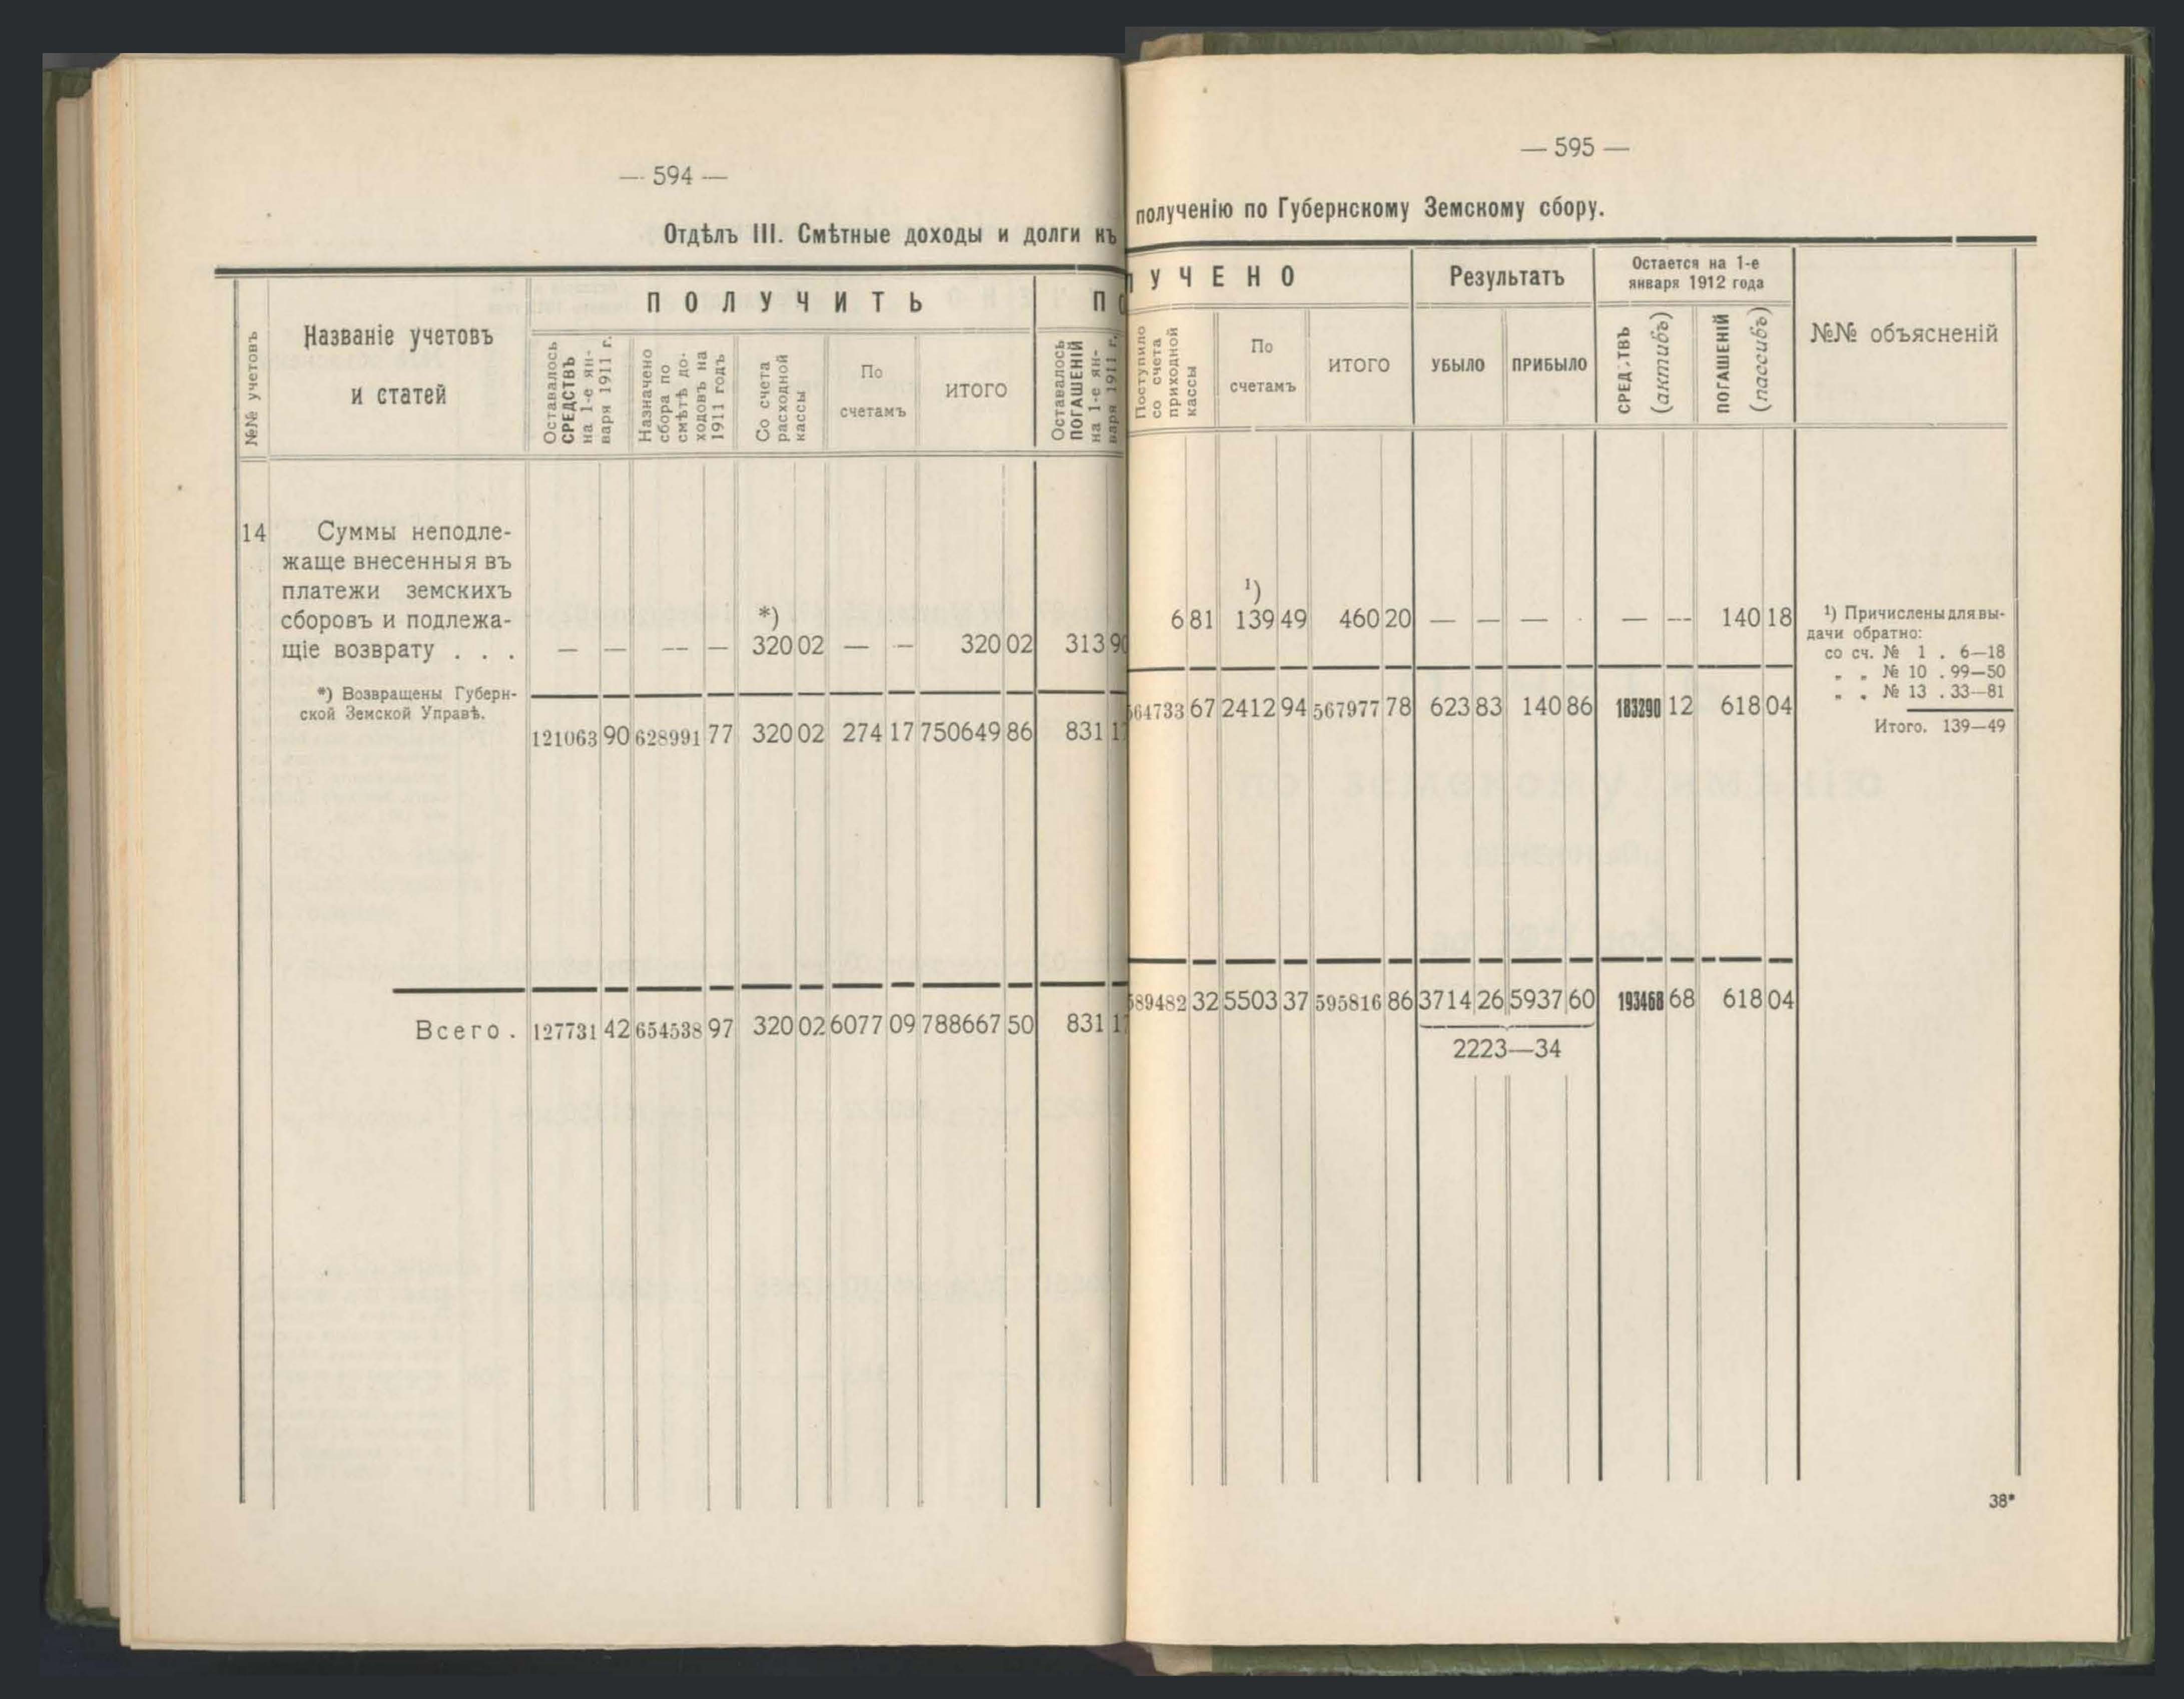 — 594 —
Отдѣлъ III. Смѣтные доходы и долги къ
№№ учетовъ
Названіе учетовъ
и статей
ПОЛУЧИТЬ
Оставалось
СРЕДСТВЪ
на 1-е ян-
варя 1911 г.
Назначено
сбора по
смѣтѣ до-
ходовъ на
1911 годъ
Со счета
расходной
кассы
По
счетамъ
ИТОГО
ПО
Оставалось
ПОГАШЕНІЙ
на 1-е ян-
варя 1911 г.
14 Суммы неподле-
жаще внесенныя въ
платежи земскихъ
сборовъ и подлежа-
щіе возврату . . . — — — — *) 320 02 — — 320 02 313 90
*) Возвращены Губерн-
ской Земской Управѣ.
121063 90 628991 77 320 02 274 17 750649 86 831 1
Всего . 127731 42 654538 97 320 02 6077 09 788667 50 831 1
— 595 —
полученію по Губернскому Земскому сбору.
УЧЕНО
Поступило
со счета
приходной
кассы
По
счетамъ
ИТОГО
Результатъ
УБЫЛО
ПРИБЫЛО
Остается на 1-е
января 1912 года
СРЕДСТВЪ
(активъ)
ПОГАШЕНІЙ
(пассивъ)
№№ объясненій
6 81 ¹) 139 49 460 20 — — — — — 140 18
564733 67 2412 94 567977 78 623 83 140 86 183290 12 618 04
589482 32 5503 37 595816 86 3714 26 5937 60 193468 68 618 04
2223—34
¹) Причислены для вы-
дачи обратно:
со сч. № 1 . 6—18
„ „ № 10 . 99—50
„ „ № 13 . 33—81
Итого. 139—49
38*